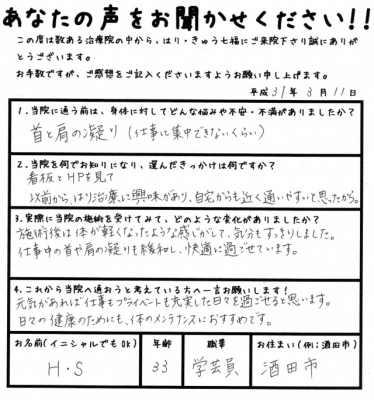 あなたの声をお聞かせください!!
この度は数ある治療院の中から、はり・きゅう七福にご来院下さり誠にありが
とうございます。
お手数ですが、ご感想をご記入くださいますようお願い申し上げます。
平成 31年 3月 11日
1.当院に通う前は、身体に対してどんな悩みや不安・不満がありましたか?
首と肩の凝り(仕事に集中できないくらい)
2.当院を何でお知りになり、選んだきっかけは何ですか?
看板とHPを見て
以前から、はり治療に興味があり、自宅からも近く通いやすいと思ったから。
3.実際に当院の施術を受けてみて、どのような変化がありましたか?
施術後は体が軽くなったような感じがして、気分もすっきりしました。
仕事中の首や肩の凝りも緩和し、快適に過ごせています。
4.これから当院へ通おうと考えている方へ一言お願いします!
元気があれば仕事もプライベートも充実した日々を過ごせると思います。
日々の健康のためにも、体のメンテナンスにおすすめです。
お名前(イニシャルでもOK) 年齢 職業 お住まい(例:酒田市)
H・S 33 学芸員 酒田市